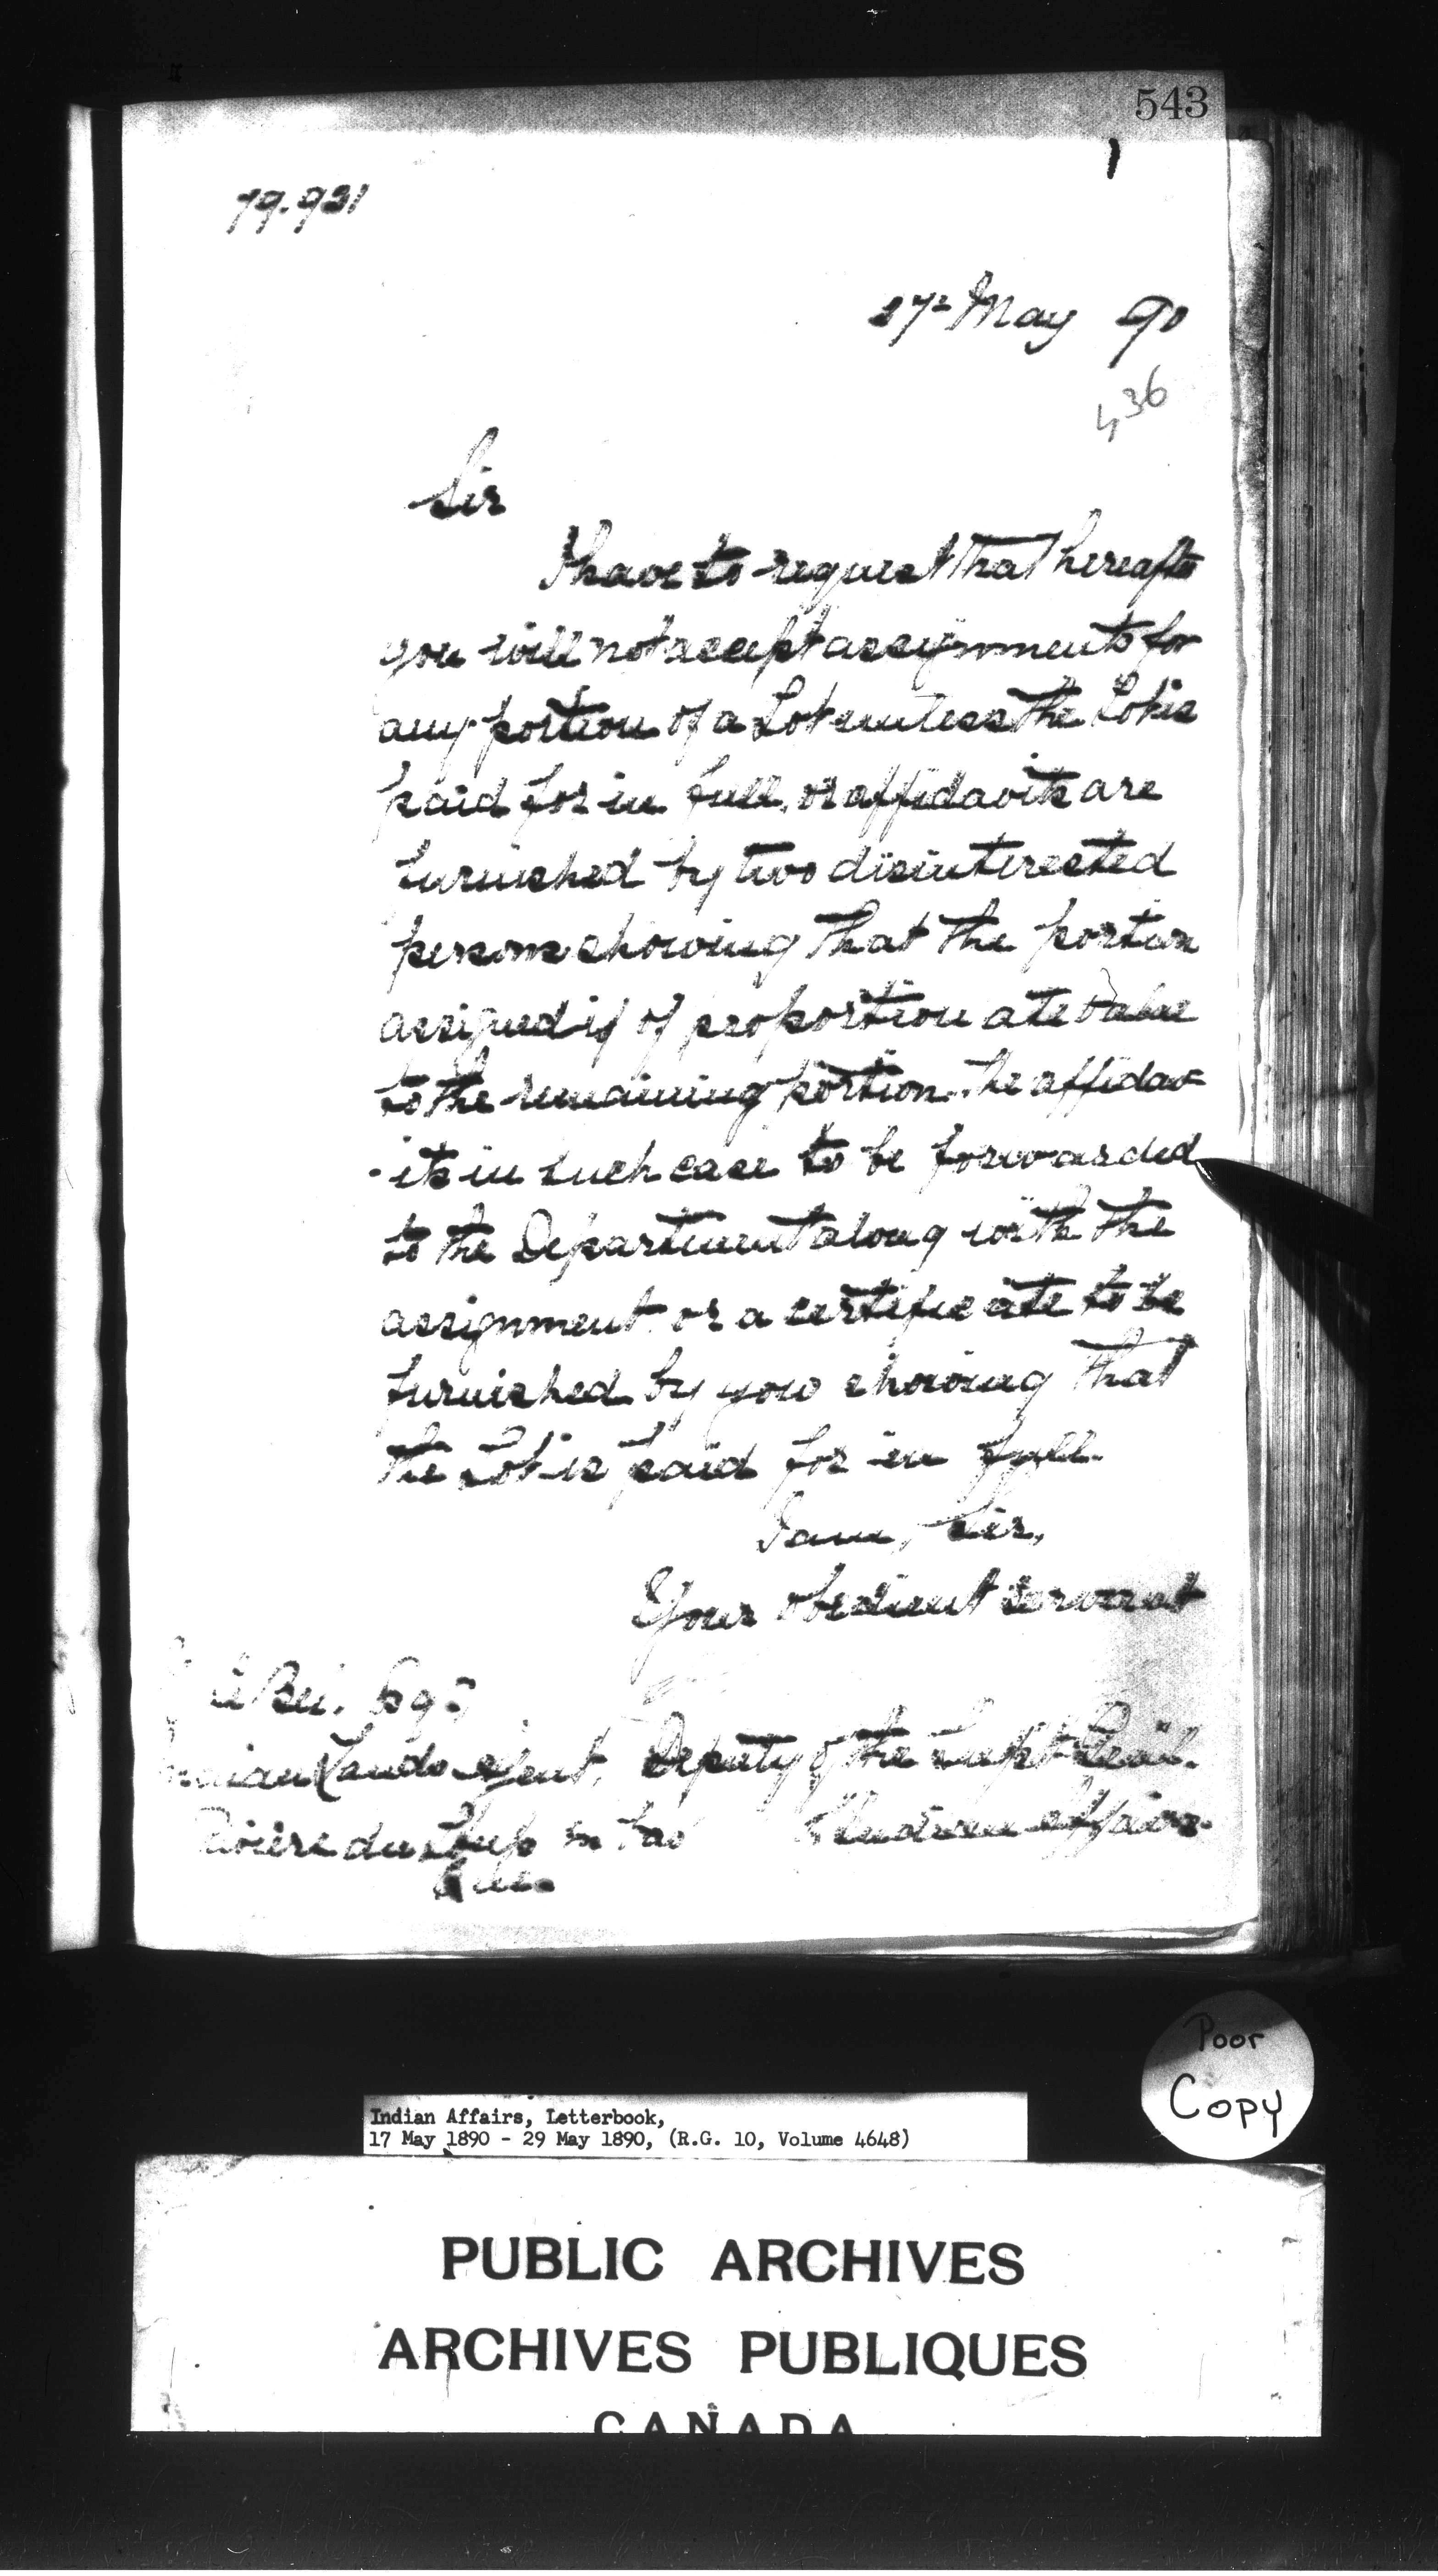 543
79.931
27th May 90
436
Sir
I have to request that hereafter
you will not accept assignments for
any portion of a Lot unless the Lot is
paid for in full, or affidavits are
furnished by two disinterested
persons showing that the portion
assigned is of proportionate value
to the remaining portion. The affidav
-its in such case to be forwarded
to the Department along with the
assignment or a certificate to be
furnished by you showing that
the Lot is paid for in full.
I am, Sir,
Your obedient servant
Esqr
Indian Lands Agent, Deputy of the Supt Genl.
Rivière du Loup en bas Indian Affairs.
Que.
Poor
Copy
Indian Affairs, Letterbook,
17 May 1890 - 29 May 1890, (R.G. 10, Volume 4648)
PUBLIC ARCHIVES
ARCHIVES PUBLIQUES
CANADA